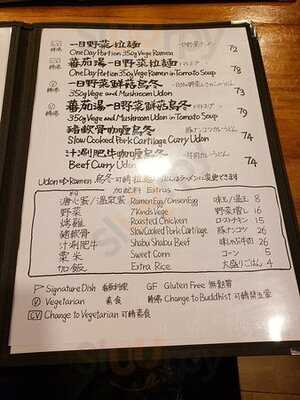 一日野菜拉麵 72
One Day Portion 350g Vege Ramen
蕃茄湯一日野菜拉麵
One Day Portion 350g Vege Ramen in Tomato Soup 78
一日野菜鮮菇烏冬
350g Vege and Mushroom Udon 73
蕃茄湯一日野菜鮮菇烏冬
350g Vege and Mushroom Udon in Tomato Soup 79
豬軟骨咖喱烏冬
Slow Cooked Pork Cartilage Curry Udon 74
汁涮肥牛咖喱烏冬
Beef Curry Udon 74
Udon ⇨ Ramen 烏冬可轉拉麵
加配料 Extras
溏心蛋/溫泉蛋 Ramen Egg/Onsen Egg 味玉/温玉 8
野菜 7 Kinds Vege 野菜増し 16
烤雞 Roasted Chicken ローストチキン 15
豬軟骨 Slow Cooked Pork Cartilage 豚ナンコツ 26
汁涮肥牛 Shabu Shabu Beef 26
粟米 Sweet Corn コーン 5
加飯 Extra Rice 大盛りごはん 4
P Signature Dish GF Gluten Free 無麩質
V Vegetarian 素食 Change to Buddhist
CV Change to Vegetarian 可轉素食